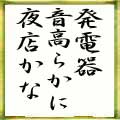 発電器
音高らかに
夜店かな